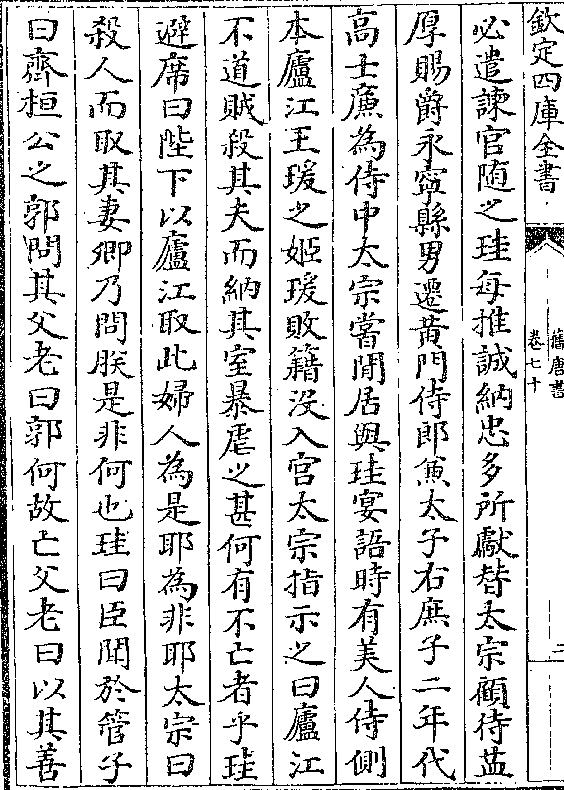 欽定四庫全書
舊唐書
卷七十
二
必遣諫官隨之珪每推誠納忠多所獻替太宗顧待益
厚賜爵永寧縣男遷黄門侍郎兼太子右庶子二年代
高士廉為侍中太宗嘗閒居與珪宴語時有美人侍側
本廬江王瑗之姬瑗敗籍没入宫太宗指示之曰廬江
不道賊殺其夫而納其室暴虐之甚何有不亡者乎珪
避席曰陛下以廬江取此婦人為是耶為非耶太宗曰
殺人而取其妻卿乃問朕是非何也珪曰臣聞於管子
曰齊桓公之郭問其父老曰郭何故亡父老曰以其善